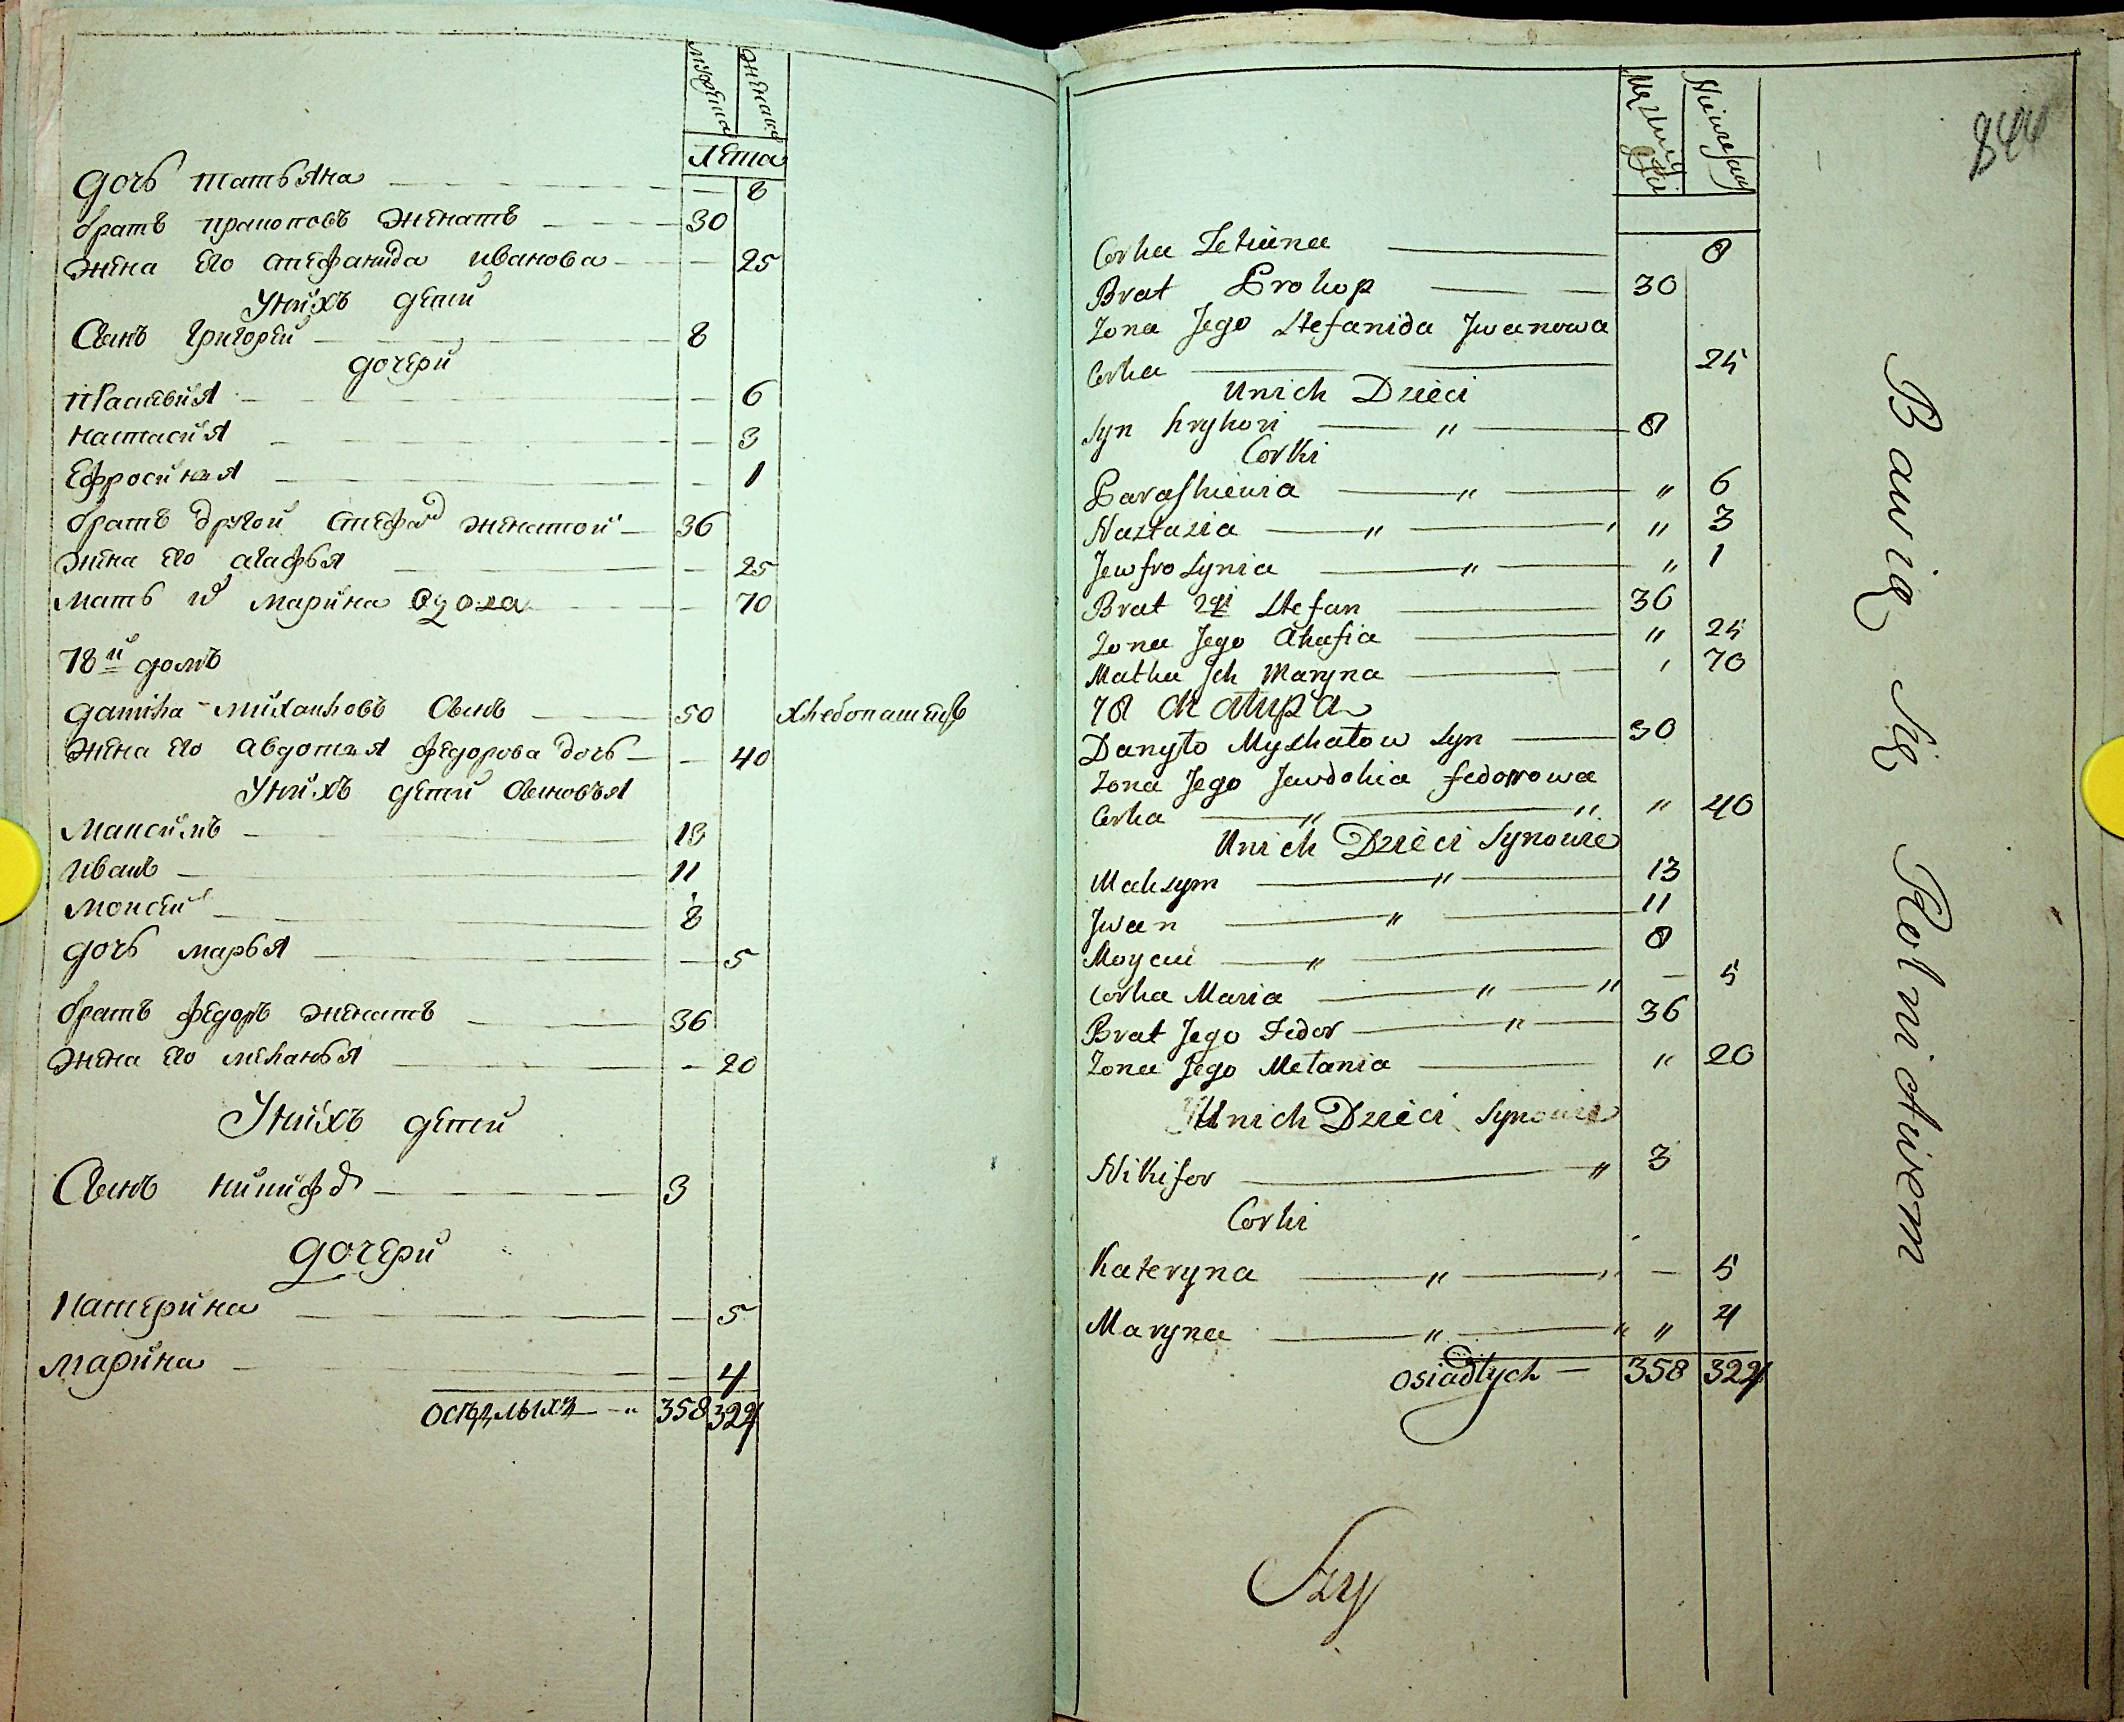 мужеска
женска
лета
дочь татьяна — — 8
братъ прокопъ женатъ — 30
жена его стефанида иванова — — 25
У них детей
Сынъ григорей — 8
дочери
Параскевия — — 6
настасия — — 3
Ефросиния — — 1
братъ другой стефанъ женатой — 36
жена его агафья — — 25
мать их марина вдова — — 70
78й домъ
данила михайловъ сынъ — 50 хлебопашецъ
жена его авдотья федорова дочь — — 40
У них детей сыновья
Максимъ — 13
иванъ — 11
моисей — 8
дочь марья — — 5
братъ федоръ женатъ — 36
жена его меланья — — 20
У них детей
Сынъ никифор — 3
дочери
Катерина — — 5
марина — — 4
оседлыхъ — 358 324
844
Corka Tetiana — 8
Brat Prokop — 30
Zona Jego Stefanida Jwanowa
Corka — 25
Unich Dzieci
Syn hryhori — " — 8
Corki
Paraskiewia — " — " 6
Nastazia — " — " 3
Jewfrosynia — " — " 1
Brat 2gi Stefan — 36
Zona Jego Ahafia — " 25
Matka Jch Maryna — " 70
78 chałupa
Danyło Mychałow Syn — 50
Zona Jego Jewdokia fedorowa
Corka — " — " " 40
Unich Dzieci Synowie
Maksym — " — 13
Jwan — " — 11
Moycei — " — 8
Corka Maria — " — " — 5
Brat Jego Fedor — " — 36
Zona Jego Mełania — " 20
Unich Dzieci Synowie
Nikifor — " 3
Corki
Kateryna — " — " — 5
Maryna — " — " " 4
osiadłych — 358 324
Bawią Się Rolnictwem
Szy